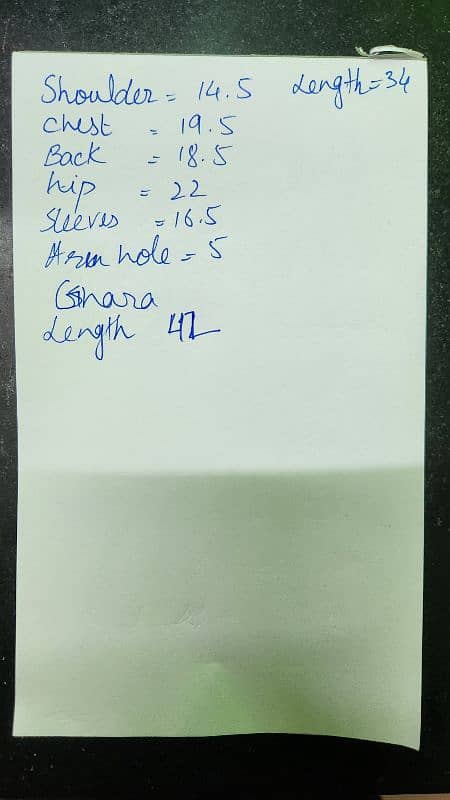 Shoulder = 14.5 Length = 34
Chest = 19.5
Back = 18.5
hip = 22
Sleeves = 16.5
Arm hole = 5
Gharara
Length 42